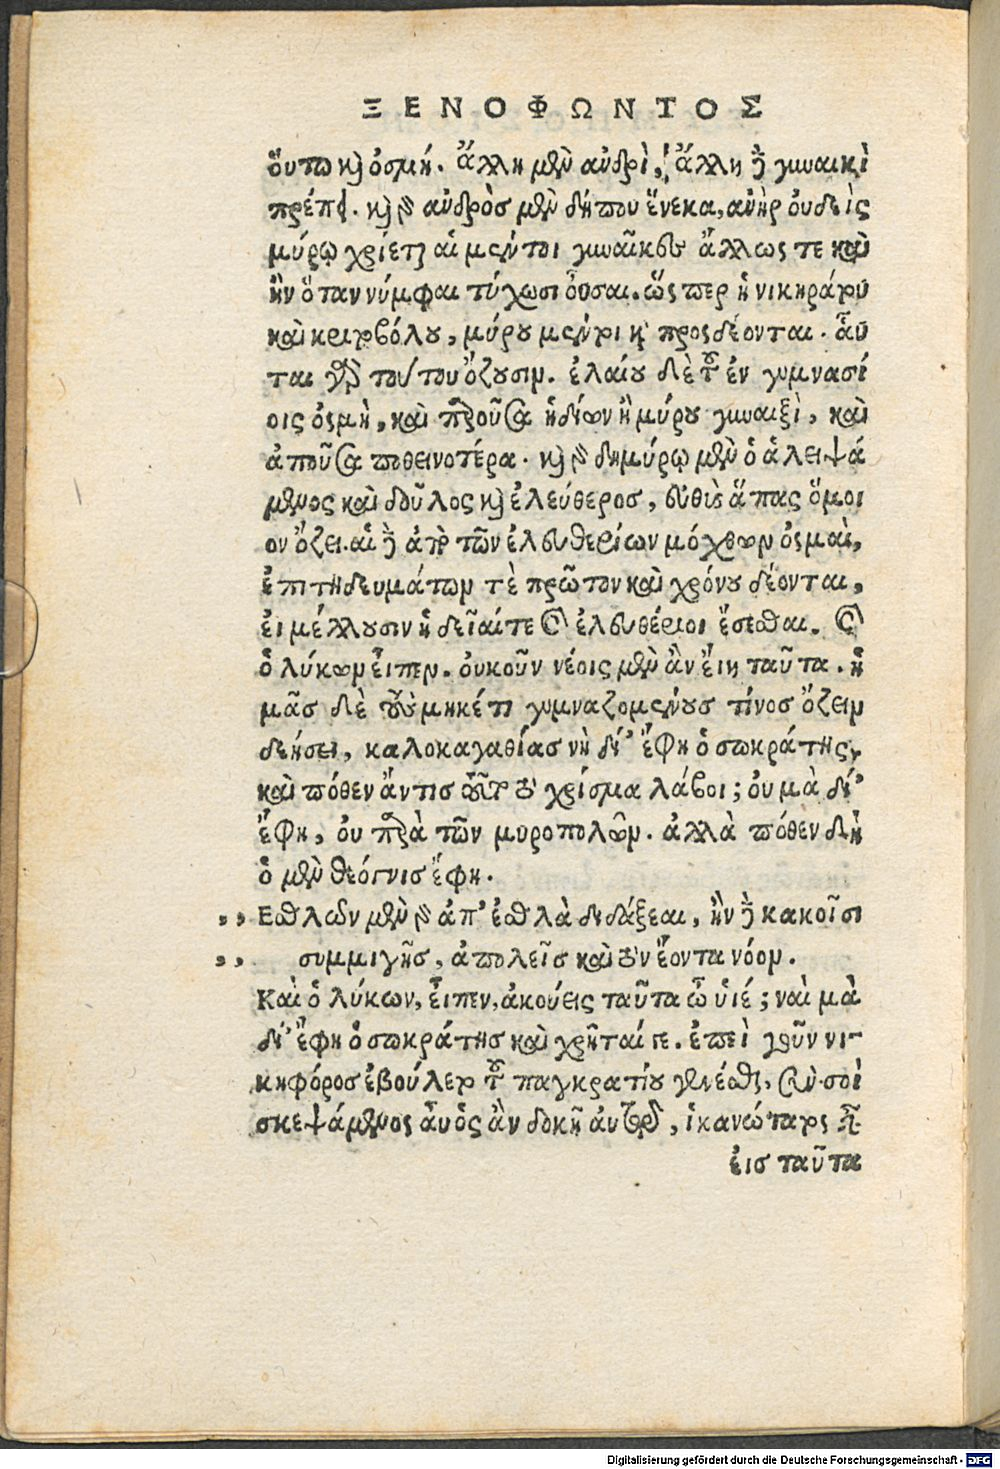 ΞΕΝΟΦΩΝΤΟΣ
ὅυτω καὶ ὀσμή. ἄλλη μὲν ἀνδρὶ, ἄλλη δὲ γυναικὶ
πρέπει. καὶ γὰρ ἀνδρὸς μὲν δήπου ἕνεκα, ἀνὴρ ὀυδεὶς
μύρῳ χρίεται αἱ μέντοι γυναῖκες ἄλλως τε καὶ
ἢν ὅταν νύμφαι τύχωσι ὀῦσαι. ὥς περ ἡ νικηράτου
καὶ κριτοβόλου, μύρου μὲν τι καὶ προςδέονται. ἆυ
ται γὰρ τούτου ὄζουσιν. ἐλαίου δὲ τοῦ ἐν γυμνασί
οις ὀςμὴ, καὶ παροῦσα ἡδίων ἢ μύρου γυναιξὶ, καὶ
ἀποῦσα ποθεινοτέρα. καὶ γὰρ δὴ μύρῳ μὲν ὁ ἀλειψά
μενος καὶ δοῦλος καὶ ἐλεύθερος, ἐυθὺς ἅπας ὅμοι
ον ὄζει. αἱ δὲ ἀπὸ τῶν ἐλευθερίων μόχθων ὀςμαὶ,
ἐπιτηδευμάτων τὲ πρῶτον καὶ χρόνου δέονται,
ἐι μέλλουσιν ἡδεῖαί τε καὶ ἐλευθέριοι ἔσεσθαι. καὶ
ὁ λύκων ἔιπεν. ὀυκοῦν νέοις μὲν ἂν ἔιη ταῦτα. ἡ
μᾶς δὲ τοὺς μηκέτι γυμναζομένους τίνος ὄζειν
δεήσει, καλοκαγαθίας νὴ δί' ἔφη ὁ σωκράτης,
καὶ πόθεν ἄν τις τοῦτο τὸ χρίσμα λάβοι; ὀυ μὰ δί'
ἔφη, ὀυ παρὰ τῶν μυροπολῶν. ἀλλὰ πόθεν δὴ
ὁ μὲν θεόγνις ἔφη.
,, Εσθλῶν μὲν γὰρ ἀπ' ἐσθλὰ διδάξεαι, ἢν δὲ κακοῖσι
,, συμμιγῆς, ἀπολεῖς καὶ τὸν ἔοντα νόον.
Καὶ ὁ λύκων, ἔιπεν, ἀκούεις ταῦτα ὦ ὑιέ; ναὶ μὰ
δί' ἔφη ὁ σωκράτης καὶ χρῆταί γε. ἐπεὶ γοῦν νι-
κηφόρος ἐβούλετο τοῦ παγκρατίου γενέσθαι, σὺν σοὶ
σκεψάμενος ὃς ἂν δοκῇ ἀυτῷ, ἱκανώτατος
ἐις ταῦτα
Digitalisierung gefördert durch die Deutsche Forschungsgemeinschaft - DFG